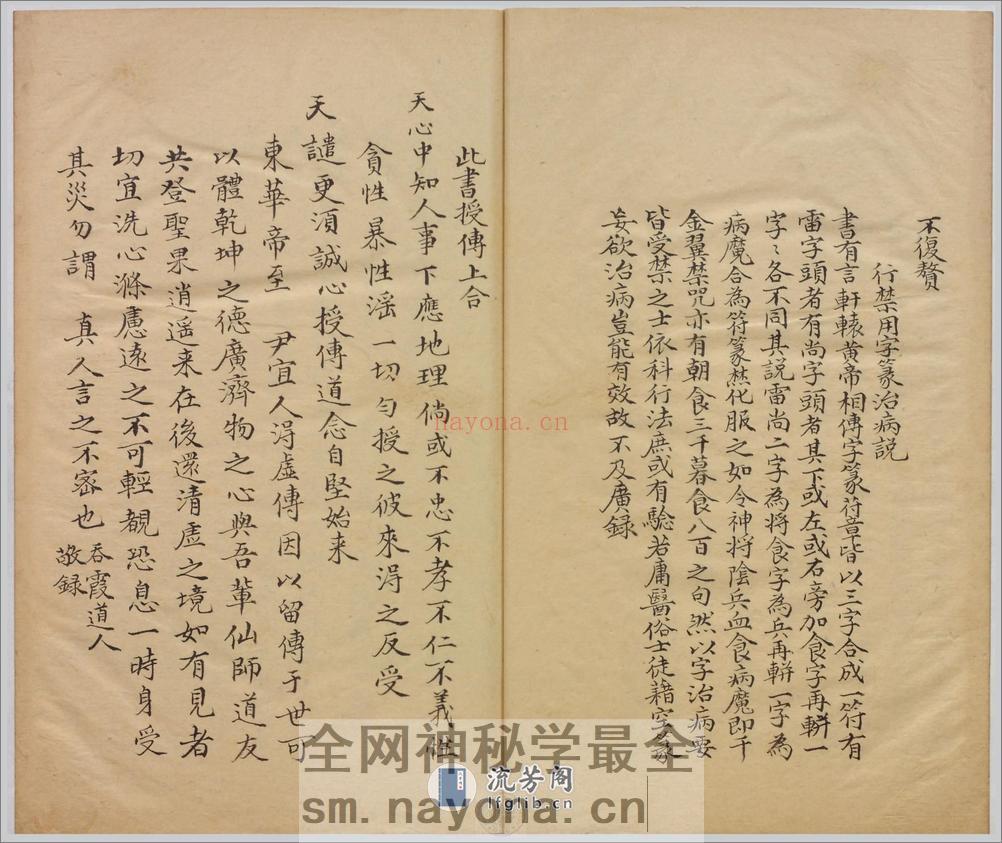 不復贅
行禁用字篆治病説
書有言軒轅黄帝相傳字篆符章皆以三字合成一符有
雷字頭者有尚字頭者其下或左或右旁加食字再輧一
字〻各不同其説雷尚二字為將食字為兵再輧一字為
病魔合為符篆焚化服之如令神將陰兵血食病魔即千
金翼禁咒亦有朝食三千暮食八百之句然以字治病要
皆受禁之士依科行法庶或有驗若庸醫俗士徒藉空篆
妄欲治病豈能有效故不及廣録
此書授傳上合
天心中知人事下應地理倘或不忠不孝不仁不義性
貪性暴性滛一切匀授之彼來淂之反受
天譴更湏誠心授傳道念自堅始来
東華帝至 尹宜人淂虚傳因以留傳于世可
以體乾坤之德廣濟物之心與吾輩仙師道友
共登聖果逍遥来在後還清虚之境如有見者
切宜洗心滌慮遠之不可輕覩恐息一時身受
其災勿謂 真人言之不宻也
吞霞道人
敬録
nayona.cn
全网神秘学最全
流芳阁
lfglib.cn
sm.nayona.cn